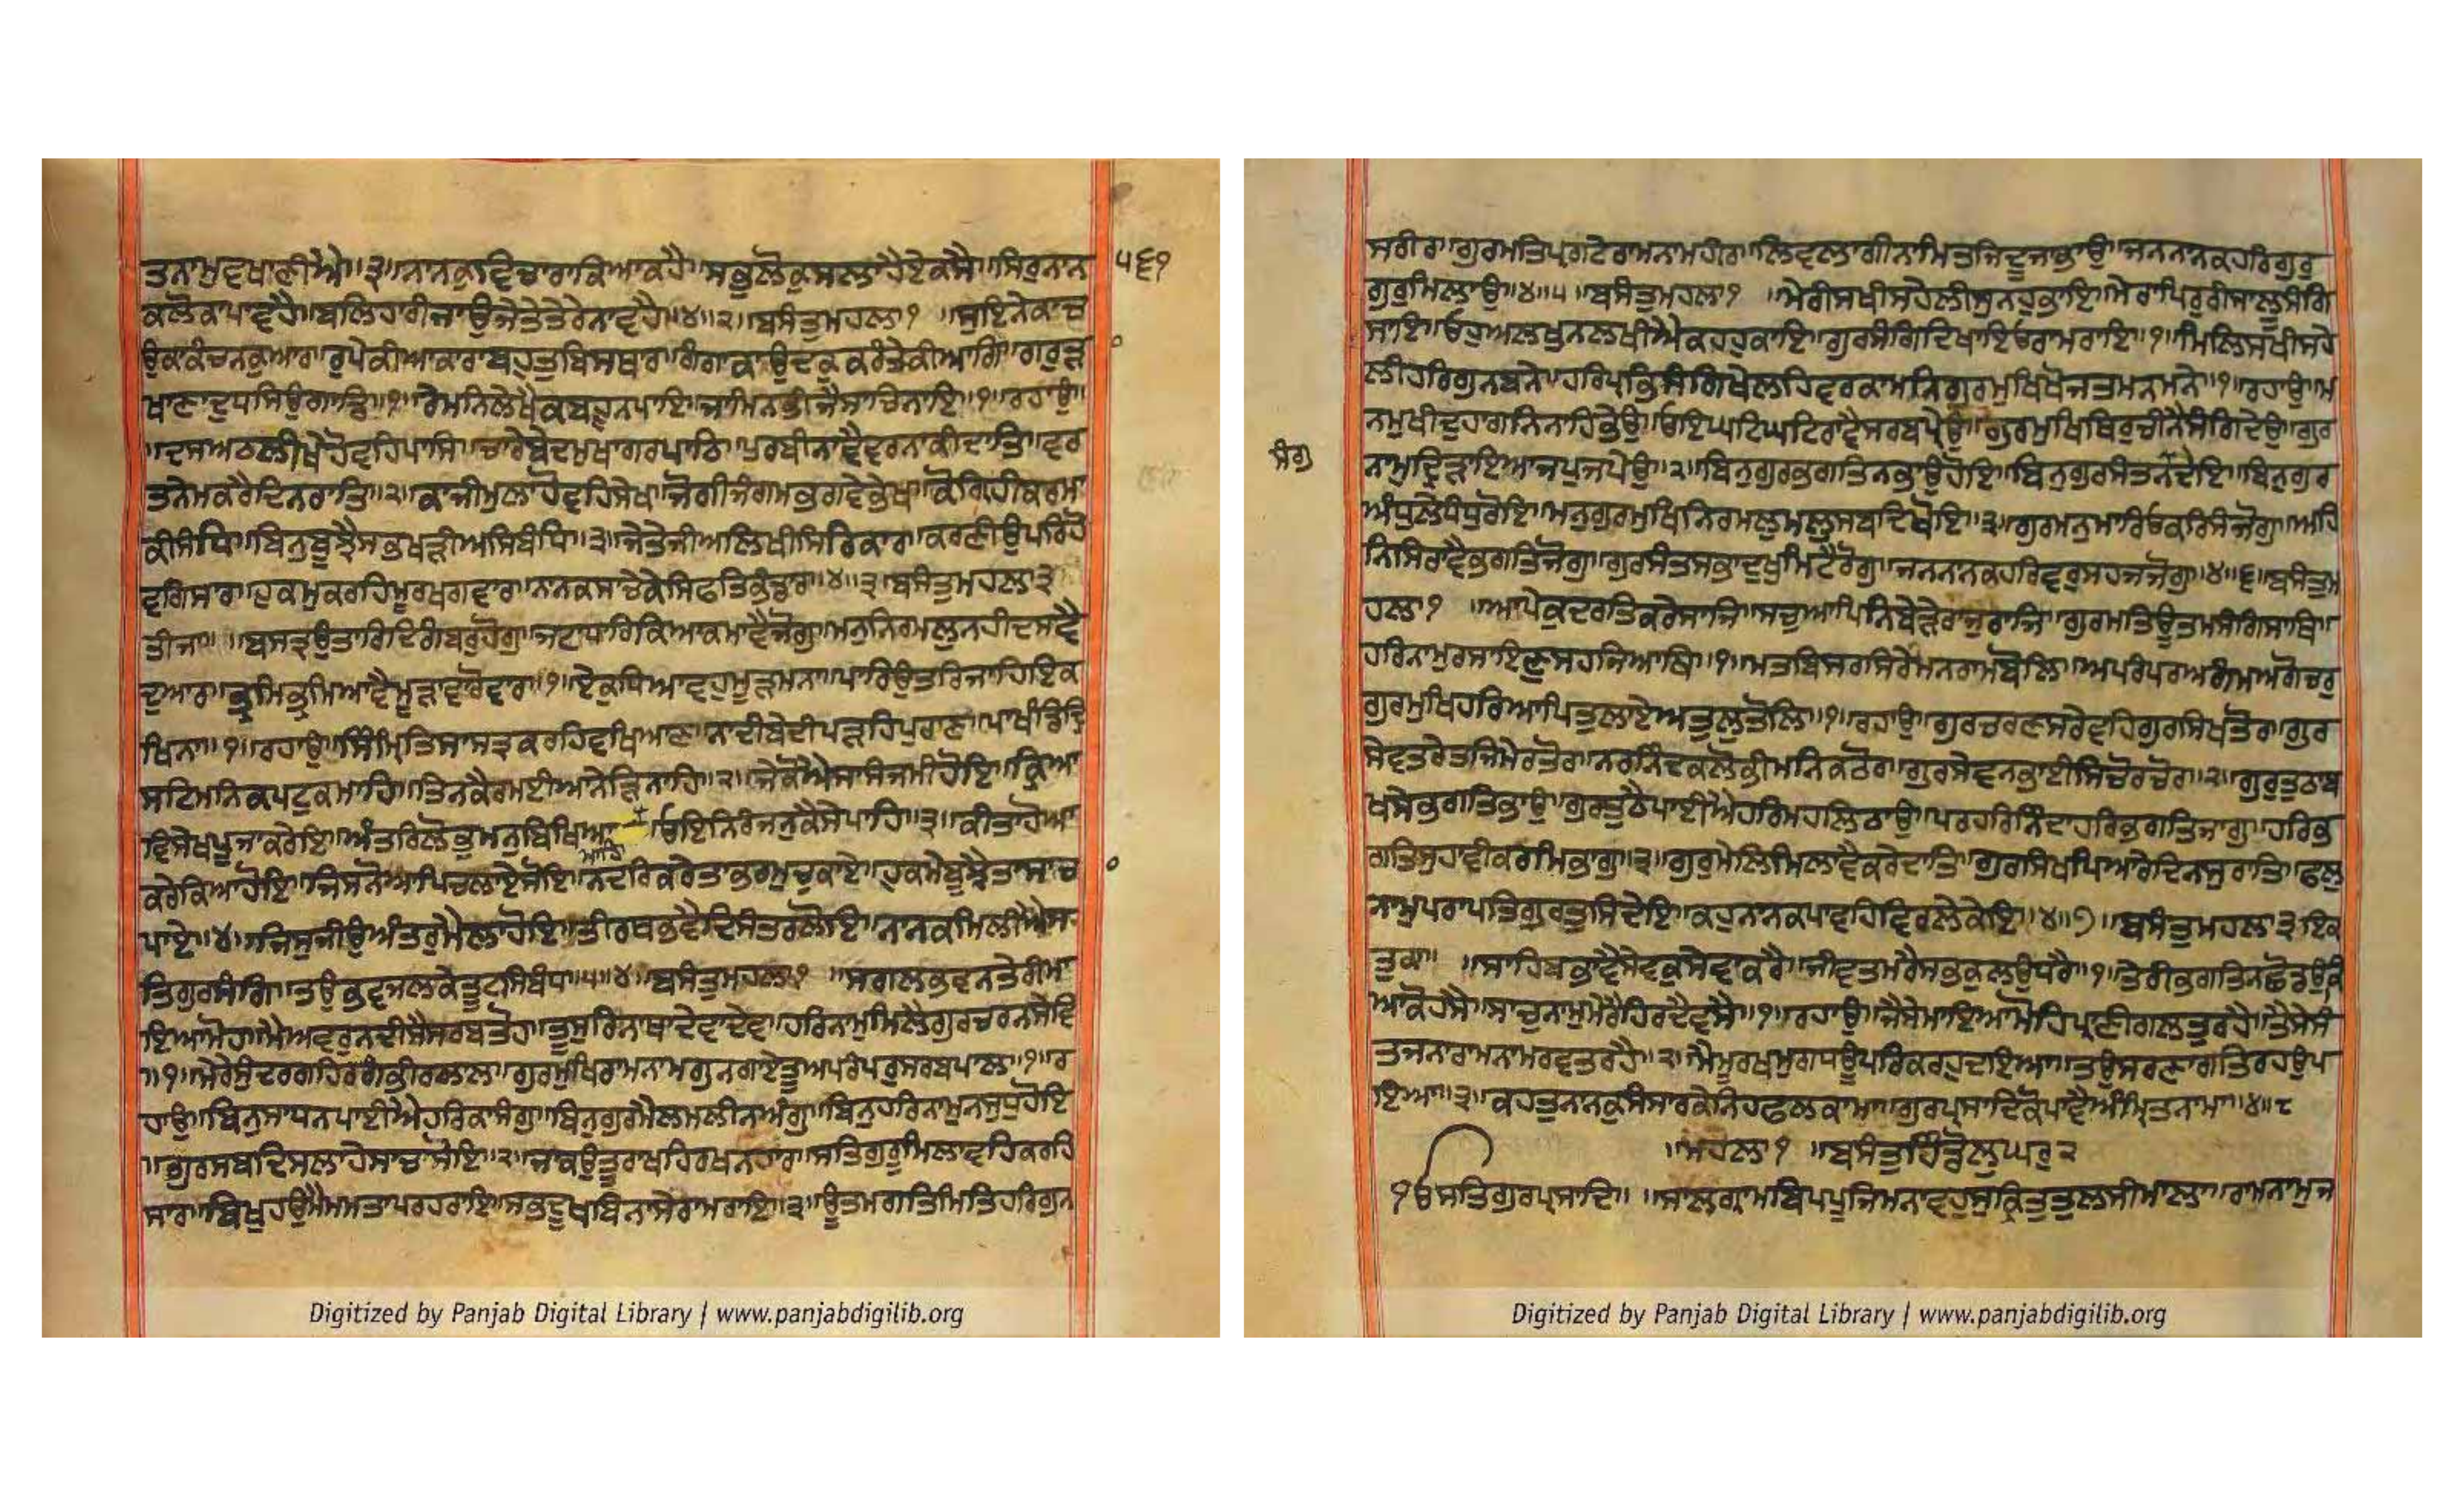 ਤਨਾਮੁਵਖਾਣੀਐ॥੩॥ਨਾਨਕੁਵਿਚਾਰਾਕਿਆਕਹੈ॥ਸਭੁਲੋਕੁਸਲਾਹੇਏਕਸੈ॥ਸਿਰੁਨਾਨ
੫੬੧
ਕਲੋਕਾਪਾਵਹੈ॥ਬਲਿਹਾਰੀਜਾਉਜੇਤੇਤੇਰੇਨਾਵਹੈ॥੪॥੨॥ਬਸੰਤੁਮਹਲਾ੧ ॥ਸੁਇਨੇਕਾਚ
ਉਕਕੰਚਨਕੁਆਰ॥ਰੁਪੇਕੀਆਕਾਰਾਬਹੁਤੁਬਿਸਥਾਰ॥ਗੰਗਾਕਾਉਦਕੁਕਰੰਤੇਕੀਆਗਿ॥ਗਰੁੜਾ
ਖਾਣਾਦੁਧਸਿਉਗਾਡਿ॥੧॥ਰੇਮਨਿਲੇਖੈਕਬਹੂਨਪਾਇ॥ਜਾਮਿਨਭੀਜੈਸਾਚਿਨਾਇ॥੧॥ਰਹਾਉ॥
॥ਦਸਅਠਲੀਖੇਹੋਵਹਿਪਾਸਿ॥ਚਾਰੇਬੇਦਮੁਖਾਗਰਪਾਠਿ॥ਪੁਰਬੀਨਾਵੈਵਰਨਾਕੀਦਾਤਿ॥ਵਰ
ਤਨੇਮਕਰੇਦਿਨਰਾਤਿ॥੨॥ਕਾਜੀਮੁਲਾਹੋਵਹਿਸੇਖ॥ਜੋਗੀਜੰਗਮਭਗਵੇਭੇਖ॥ਕੋਗਿਰਹੀਕਰਮਾ
ਕੀਸੰਧਿ॥ਬਿਨੁਬੂਝੈਸਭਖੜੀਅਸਿਬੰਧਿ॥੩॥ਜੇਤੇਜੀਅਲਿਖੀਸਿਰਿਕਾਰ॥ਕਰਣੀਉਪਰਿਹੋ
ਵਗਿਸਾਰ॥ਹੁਕਮੁਕਰਹਿਮੂਰਖਗਾਵਾਰ॥ਨਾਨਕਸਾਚੇਕੇਸਿਫਤਿਭੰਡਾਰ॥੪॥੩॥ਬਸੰਤੁਮਹਲਾ੩
ਤੀਜਾ॥ ॥ਬਸਤ੍ਰਉਤਾਰਿਦਿਗੰਬਰੁਹੋਗੁ॥ਜਟਾਧਾਰਿਕਿਆਕਮਾਵੈਜੋਗੁ॥ਮਨੁਨਿਰਮਲੁਨਹੀਦਸਵੈ
ਦੁਆਰ॥ਭ੍ਰਮਿਭ੍ਰਮਿਆਵੈਮੂੜਾਵਾਰੋਵਾਰ॥੧॥ਏਕੁਧਿਆਵਹੁਮੂੜਮਨਾ॥ਪਾਰਿਉਤਰਿਜਾਹਿਇਕ
ਖਿਨਾ॥੧॥ਰਹਾਉ॥ਸਿੰਮ੍ਰਿਤਿਸਾਸਤ੍ਰਕਰਹਿਵਖਿਆਣ॥ਨਾਦੀਬੇਦੀਪੜਹਿਪੁਰਾਣ॥ਪਾਖੰਡਿਦ੍ਰਿ
ਸਟਿਮਨਿਕਪਟੁਕਮਾਹਿ॥ਤਿਨਕੈਰਮਈਆਨੇੜਿਨਾਹਿ॥੨॥ਜੇਕੋਐਸਾਸੰਜਮੀਹੋਇ॥ਕ੍ਰਿਆ
ਵਿਸੇਖਪੂਜਾਕਰੇਇ॥ਅੰਤਰਿਲੋਭੁਮਨੁਬਿਖਿਆ ਓਇਨਿਰੰਜਨੁਕੈਸੇਪਾਹਿ॥੩॥ਕੀਤਾਹੋਆ
ਮਾਹਿ
ਕਰੇਕਿਆਹੋਇ॥ਜਿਸਨੋਆਪਿਚਲਾਏਸੋਇ॥ਨਦਰਿਕਰੇਤਾਭਰਮੁਚੁਕਾਏ॥ਹੁਕਮੇਬੂਝੈਤਾਸਾਚ
ਪਾਏ॥੪॥ਜਿਸੁਜੀਉਅੰਤਰੁਮੈਲਾਹੋਇ॥ਤੀਰਥਭਵੈਦਿਸੰਤਰਲੋਇ॥ਨਾਨਕਮਿਲੀਐਸ
ਤਿਗੁਰਸੰਗਿ॥ਤਉਭਵਜਲਕੇਤੂਟਸਿਬੰਧ॥੫॥੪॥ਬਸੰਤੁਮਹਲਾ੧ ॥ਸਗਲਭਵਨਤੇਰੀਮਾ
ਇਆਮੋਹ॥ਮੈਅਵਰੁਨਦੀਸੈਸਰਬਤੋਹ॥ਤੂਸੁਰਿਨਾਥਾਦੇਵਾਦੇਵ॥ਹਰਿਨਾਮੁਮਿਲੈਗੁਰਚਰਨਸੇਵ
॥੧॥ਮੇਰੇਸੁੰਦਰਗਹਿਰਗੰਭੀਰਲਾਲ॥ਗੁਰਮੁਖਿਰਾਮਨਾਮਗੁਨਗਾਏਤੂਅਪਰੰਪਰੁਸਰਬਪਾਲ॥੧॥ਰ
ਹਾਉ॥ਬਿਨੁਸਾਧਨਪਾਈਐਹਰਿਕਾਸੰਗੁ॥ਬਿਨੁਗੁਰਮੈਲਮਲੀਨਅੰਗੁ॥ਬਿਨੁਹਰਿਨਾਮੁਨਸੁਧੁਹੋਇ
॥ਗੁਰਸਬਦਿਸਲਾਹੇਸਾਚਾਸੋਇ॥੨॥ਜਾਕਉਤੂਰਾਖਹਿਰਖਨਹਾਰ॥ਸਤਿਗੁਰੁਮਿਲਾਵਹਿਕਰਹਿ
ਸਾਰ॥ਬਿਖੁਹਉਮੈਮਮਤਾਪਰਹਰਾਇ॥ਸਭਦੂਖਬਿਨਾਸੇਰਾਮਰਾਇ॥੩॥ਊਤਮਗਤਿਮਿਤਿਹਰਿਗੁਨ
Digitized by Panjab Digital Library | www.panjabdigilib.org
ਸਰੀਰ॥ਗੁਰਮਤਿਪ੍ਰਗਟੇਰਾਮਨਾਮਹੀਰ॥ਲਿਵਲਾਗੀਨਾਮਿਤਜਿਦੂਜਾਭਾਉ॥ਜਨਨਾਨਕਹਰਿਗੁਰੁ
ਗੁਰੁਮਿਲਾਉ॥੪॥੫॥ਬਸੰਤੁਮਹਲਾ੧ ॥ਮੇਰੀਸਖੀਸਹੇਲੀਸੁਨਹੁਭਾਇ॥ਮੇਰਾਪਿਰੁਰੀਸਾਲੂਸੰਗਿ
ਸਾਇ॥ਓਹੁਅਲਖੁਨਲਖੀਐਕਹਹੁਕਾਇ॥ਗੁਰਸੰਗਿਦਿਖਾਇਓਰਾਮਰਾਇ॥੧॥ਮਿਲਿਸਖੀਸਹੇ
ਲੀਹਰਿਗੁਨਬਨੇ॥ਹਰਿਪ੍ਰਭਸੰਗਿਖੇਲਹਿਵਰਕਾਮਨਿਗੁਰਮੁਖਿਖੋਜਤਮਨਮਨੇ॥੧॥ਰਹਾਉ॥ਮ
ਨਮੁਖੀਦੁਹਾਗਨਿਨਾਹਿਭੇਉ॥ਓਇਘਟਿਘਟਿਰਾਵੈਸਰਬਪ੍ਰੇਉ॥ਗੁਰਮੁਖਿਥਿਰੁਚੀਨੈਸੰਗਿਦੇਉ॥ਗੁਰ
ਸੰਗੁ
ਨਾਮੁਦ੍ਰਿੜਾਇਆਜਪੁਜਪੇਉ॥੨॥ਬਿਨੁਗੁਰਭਗਤਿਨਭਾਉਹੋਇ॥ਬਿਨੁਗੁਰਸੰਤਨਦੇਇ॥ਬਿਨੁਗੁਰ
ਅੰਧੁਲੇਧੰਧੁਰੋਇ॥ਮਨੁਗੁਰਮੁਖਿਨਿਰਮਲੁਮਲੁਸਬਦਿਖੋਇ॥੩॥ਗੁਰਮਨੁਮਾਰਿਓਕਰਿਸੰਜੋਗੁ॥ਅਹਿ
ਨਿਸਿਰਾਵੈਭਗਤਿਜੋਗੁ॥ਗੁਰਸੰਤਸਭਾਦੁਖੁਮਿਟੈਰੋਗੁ॥ਜਨਨਾਨਕਹਰਿਵਰੁਸਹਜਜੋਗੁ॥੪॥੬॥ਬਸੰਤੁਮ
ਹਲਾ੧ ॥ਆਪੇਕੁਦਰਤਿਕਰੇਸਾਜਿ॥ਸਚੁਆਪਿਨਿਬੇੜੇਰਾਜੁਰਾਜਿ॥ਗੁਰਮਤਿਊਤਮਸੰਗਿਸਾਥਿ॥
ਹਰਿਨਾਮੁਰਸਾਇਣੁਸਹਜਿਆਥਿ॥੧॥ਮਤਬਿਸਰਸਿਰੇਮਨਰਾਮਬੋਲਿ॥ਅਪਰੰਪਰਅਗਮਅਗੋਚਰੁ
ਗੁਰਮੁਖਿਹਰਿਆਪਿਤੁਲਾਏਅਤੁਲੁਤੋਲਿ॥੧॥ਰਹਾਉ॥ਗੁਰਚਰਣਸਰੇਵਹਿਗੁਰਸਿਖਤੋਰ॥ਗੁਰ
ਸੇਵਤਰੇਤਜਿਮੇਰਤੋਰ॥ਨਰਨਿੰਦਕਲੋਭੀਮਨਿਕਠੋਰ॥ਗੁਰਸੇਵਨਭਾਈਸਿਚੋਰਚੋਰ॥੨॥ਗੁਰੁਤੁਠਾਬ
ਖਸੇਭਗਤਿਭਾਉ॥ਗੁਰਤੁਠੈਪਾਈਐਹਰਿਮਹਲਿਠਾਉ॥ਪਰਹਰਿਨਿੰਦਾਹਰਿਭਗਤਿਜਾਗੁ॥ਹਰਿਭ
ਗਤਿਸੁਹਾਵੀਕਰਮਿਭਾਗੁ॥੩॥ਗੁਰੁਮੇਲਿਮਿਲਾਵੈਕਰੇਦਾਤਿ॥ਗੁਰਸਿਖਪਿਆਰੇਦਿਨਸੁਰਾਤਿ॥ਫਲੁ
ਨਾਮੁਪਰਾਪਤਿਗੁਰਤੁਸਿਦੇਇ॥ਕਹੁਨਾਨਕਪਾਵਹਿਵਿਰਲੇਕੇਇ॥੪॥੭॥ਬਸੰਤੁਮਹਲਾ੩ਇਕ
ਤੁਕਾ॥ ॥ਸਾਹਿਬਭਾਵੈਸੇਵਕੁਸੇਵਾਕਰੈ॥ਜੀਵਤੁਮਰੈਸਭਕੁਲਉਧਰੈ॥੧॥ਤੇਰੀਭਗਤਿਨਛੋਡਉਕਿ
ਆਕੋਹਸੈ॥ਸਾਚੁਨਾਮੁਮੇਰੈਹਿਰਦੈਵਸੈ॥੧॥ਰਹਾਉ॥ਜੈਸੇਮਾਇਆਮੋਹਿਪ੍ਰਾਣੀਗਲਤੁਰਹੈ॥ਤੈਸੇਸੰ
ਤਜਨਾਰਾਮਨਾਮਰਵਤਰਹੈ॥੨॥ਮੈਮੂਰਖਮੁਗਧਊਪਰਿਕਰਹੁਦਇਆ॥ਤਉਸਰਣਾਗਤਿਰਹਉਪ
ਇਆ॥੩॥ਕਹਤੁਨਾਨਕੁਸੰਸਾਰਕੇਨਿਹਫਲਕਾਮਾ॥ਗੁਰਪ੍ਰਸਾਦਿਕੋਪਾਵੈਅੰਮ੍ਰਿਤਨਾਮਾ॥੪॥੮
॥ਮਹਲਾ੧ ॥ਬਸੰਤੁਹਿੰਡੋਲੁਘਰੁ੨
ੴਸਤਿਗੁਰਪ੍ਰਸਾਦਿ॥ ॥ਸਾਲਗ੍ਰਾਮਬਿਪਪੂਜਿਮਨਾਵਹੁਸੁਕ੍ਰਿਤੁਤੁਲਸੀਮਾਲਾ॥ਰਾਮਨਾਮੁਜ
Digitized by Panjab Digital Library | www.panjabdigilib.org